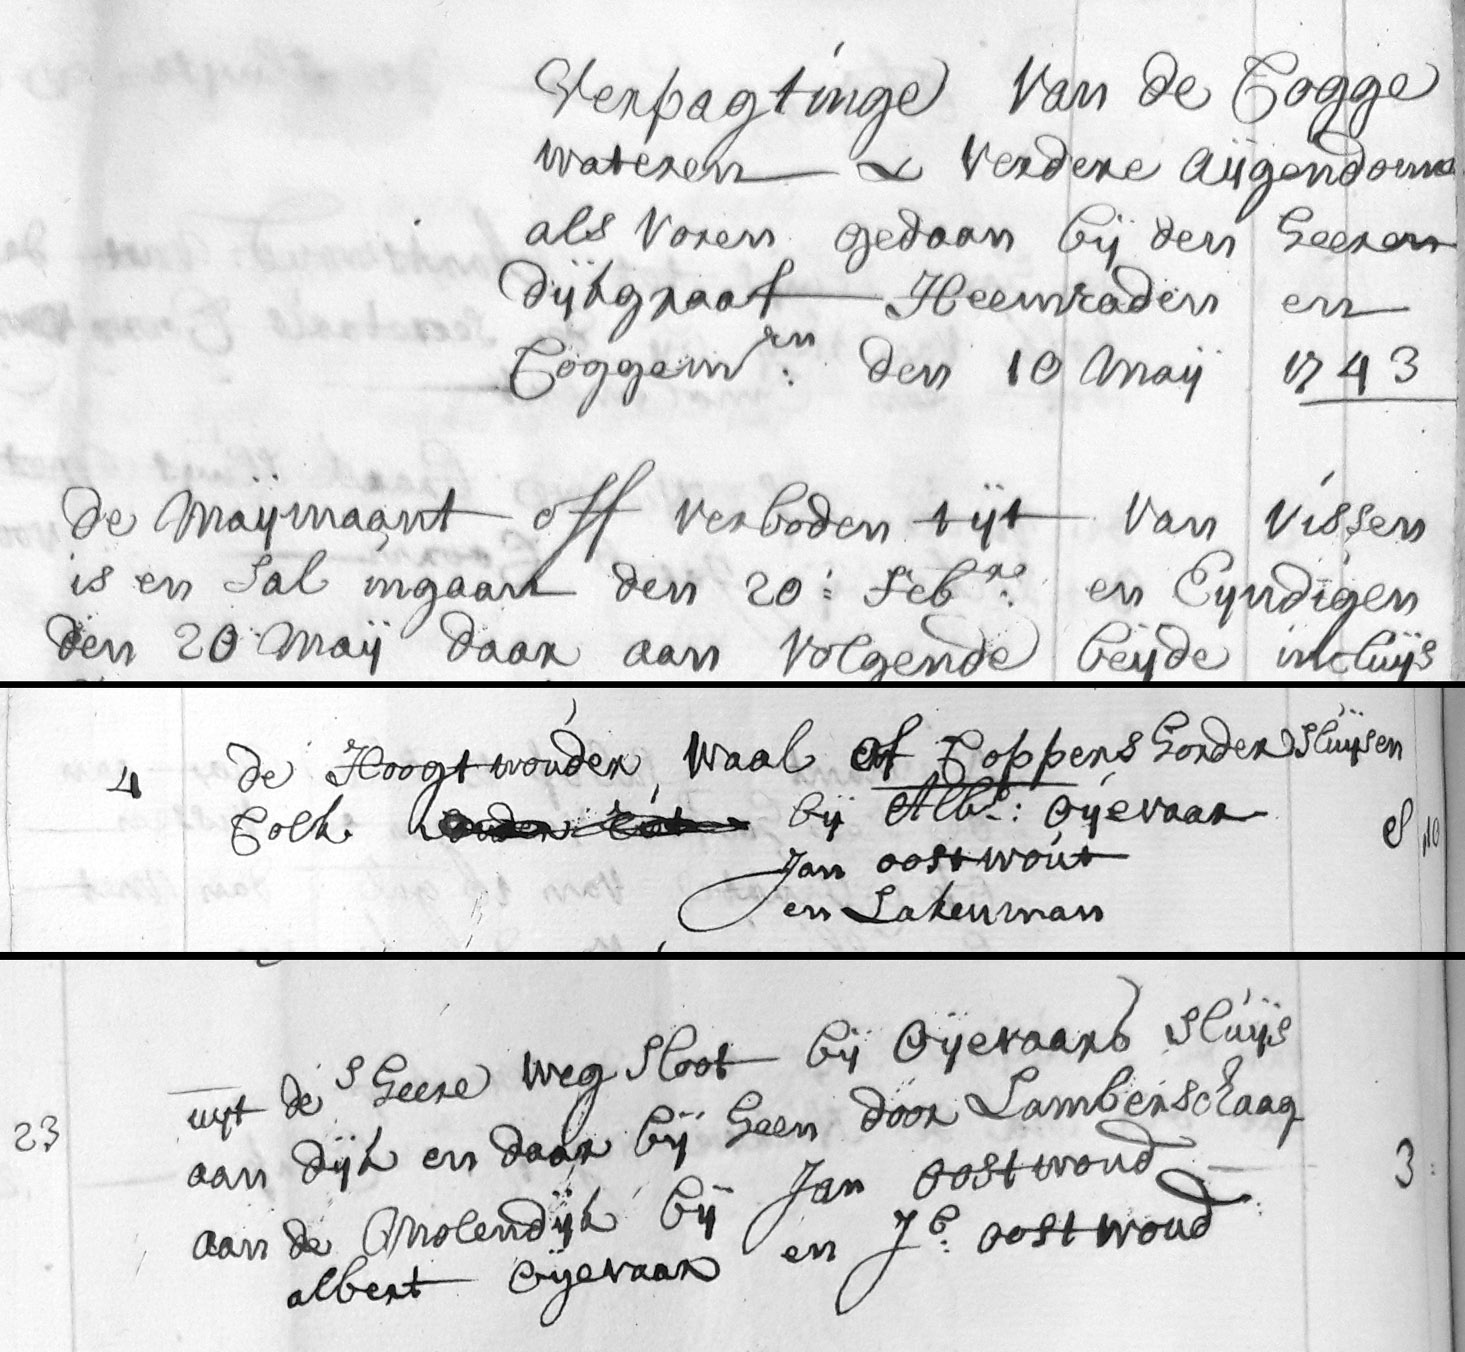 Verpagtinge Van de Cogge
wateren & Verdere Aijgendom
als Voren gedaan bij den Heeren
Dijkgraaf Heemraden en
Coggem:ren den 10 Maij 1743
de Maijmaant off verboden tijt Van Vissen
is en Sal ingaan den 20: Feb:re en Eyndigen
den 20 Maij daar aan Volgende beijde incluijs
4 de Hoogtwouder Waal of Coppershorder Sluijsen
Colk bij Alb:t Oijevaar 8 10
Jan oostwout
en Lakeman
uyt de s Heere Weg Sloot bij Oijevaars Sluijs
23 aan dijk en daar bij heen door Lamberschaag
aan de Molendijk bij Jan oostwoud 3:
albert Oijevaar en Jb: oostwoud